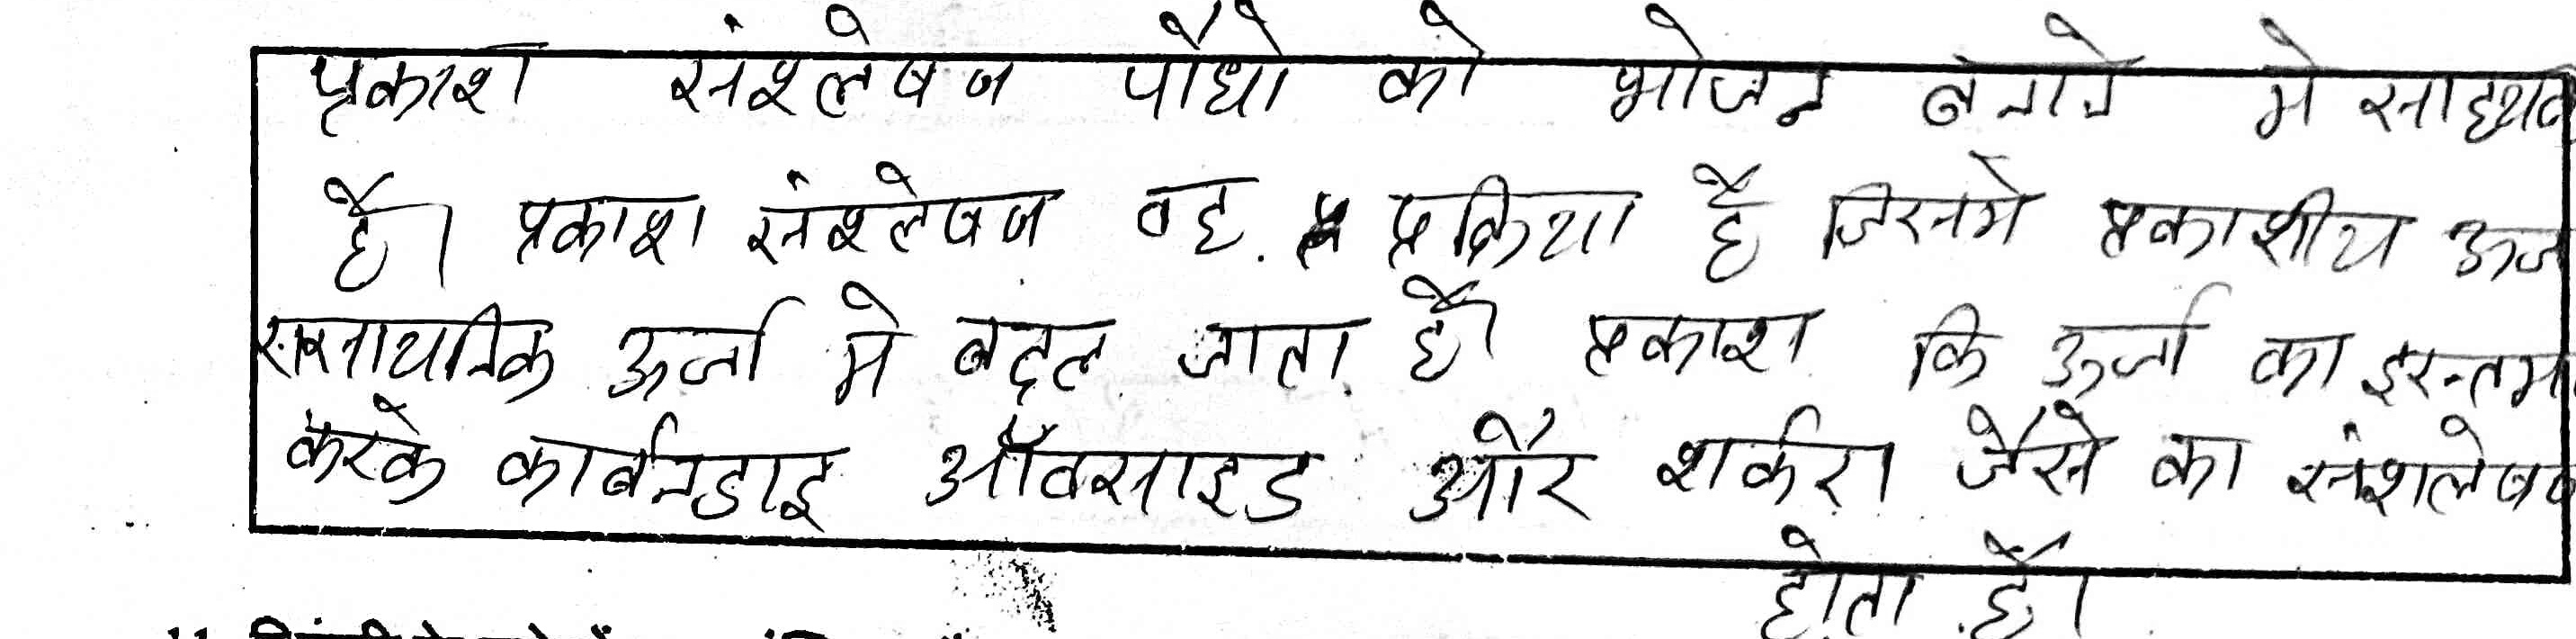 प्रकाश संश्लेषण पौधो को भोजन बनाने मे साहयक
है। प्रकाश संश्लेषण वह प्रक्रिया है जिसमे प्रकाशीय ऊर्जा
रासायनिक ऊर्जा मे बदल जाता है। प्रकाश कि ऊर्जा का
करके कार्बनडाइ ऑक्साइड और शर्करा जैसे का संशलेषण
होता है।